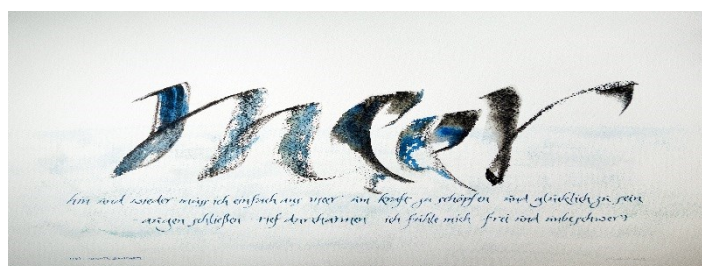 meer
hin und wieder muss ich einfach ans meer um kraft zu schöpfen und glücklich zu sein
augen schließen tief durchatmen ich fühle mich frei und unbeschwert